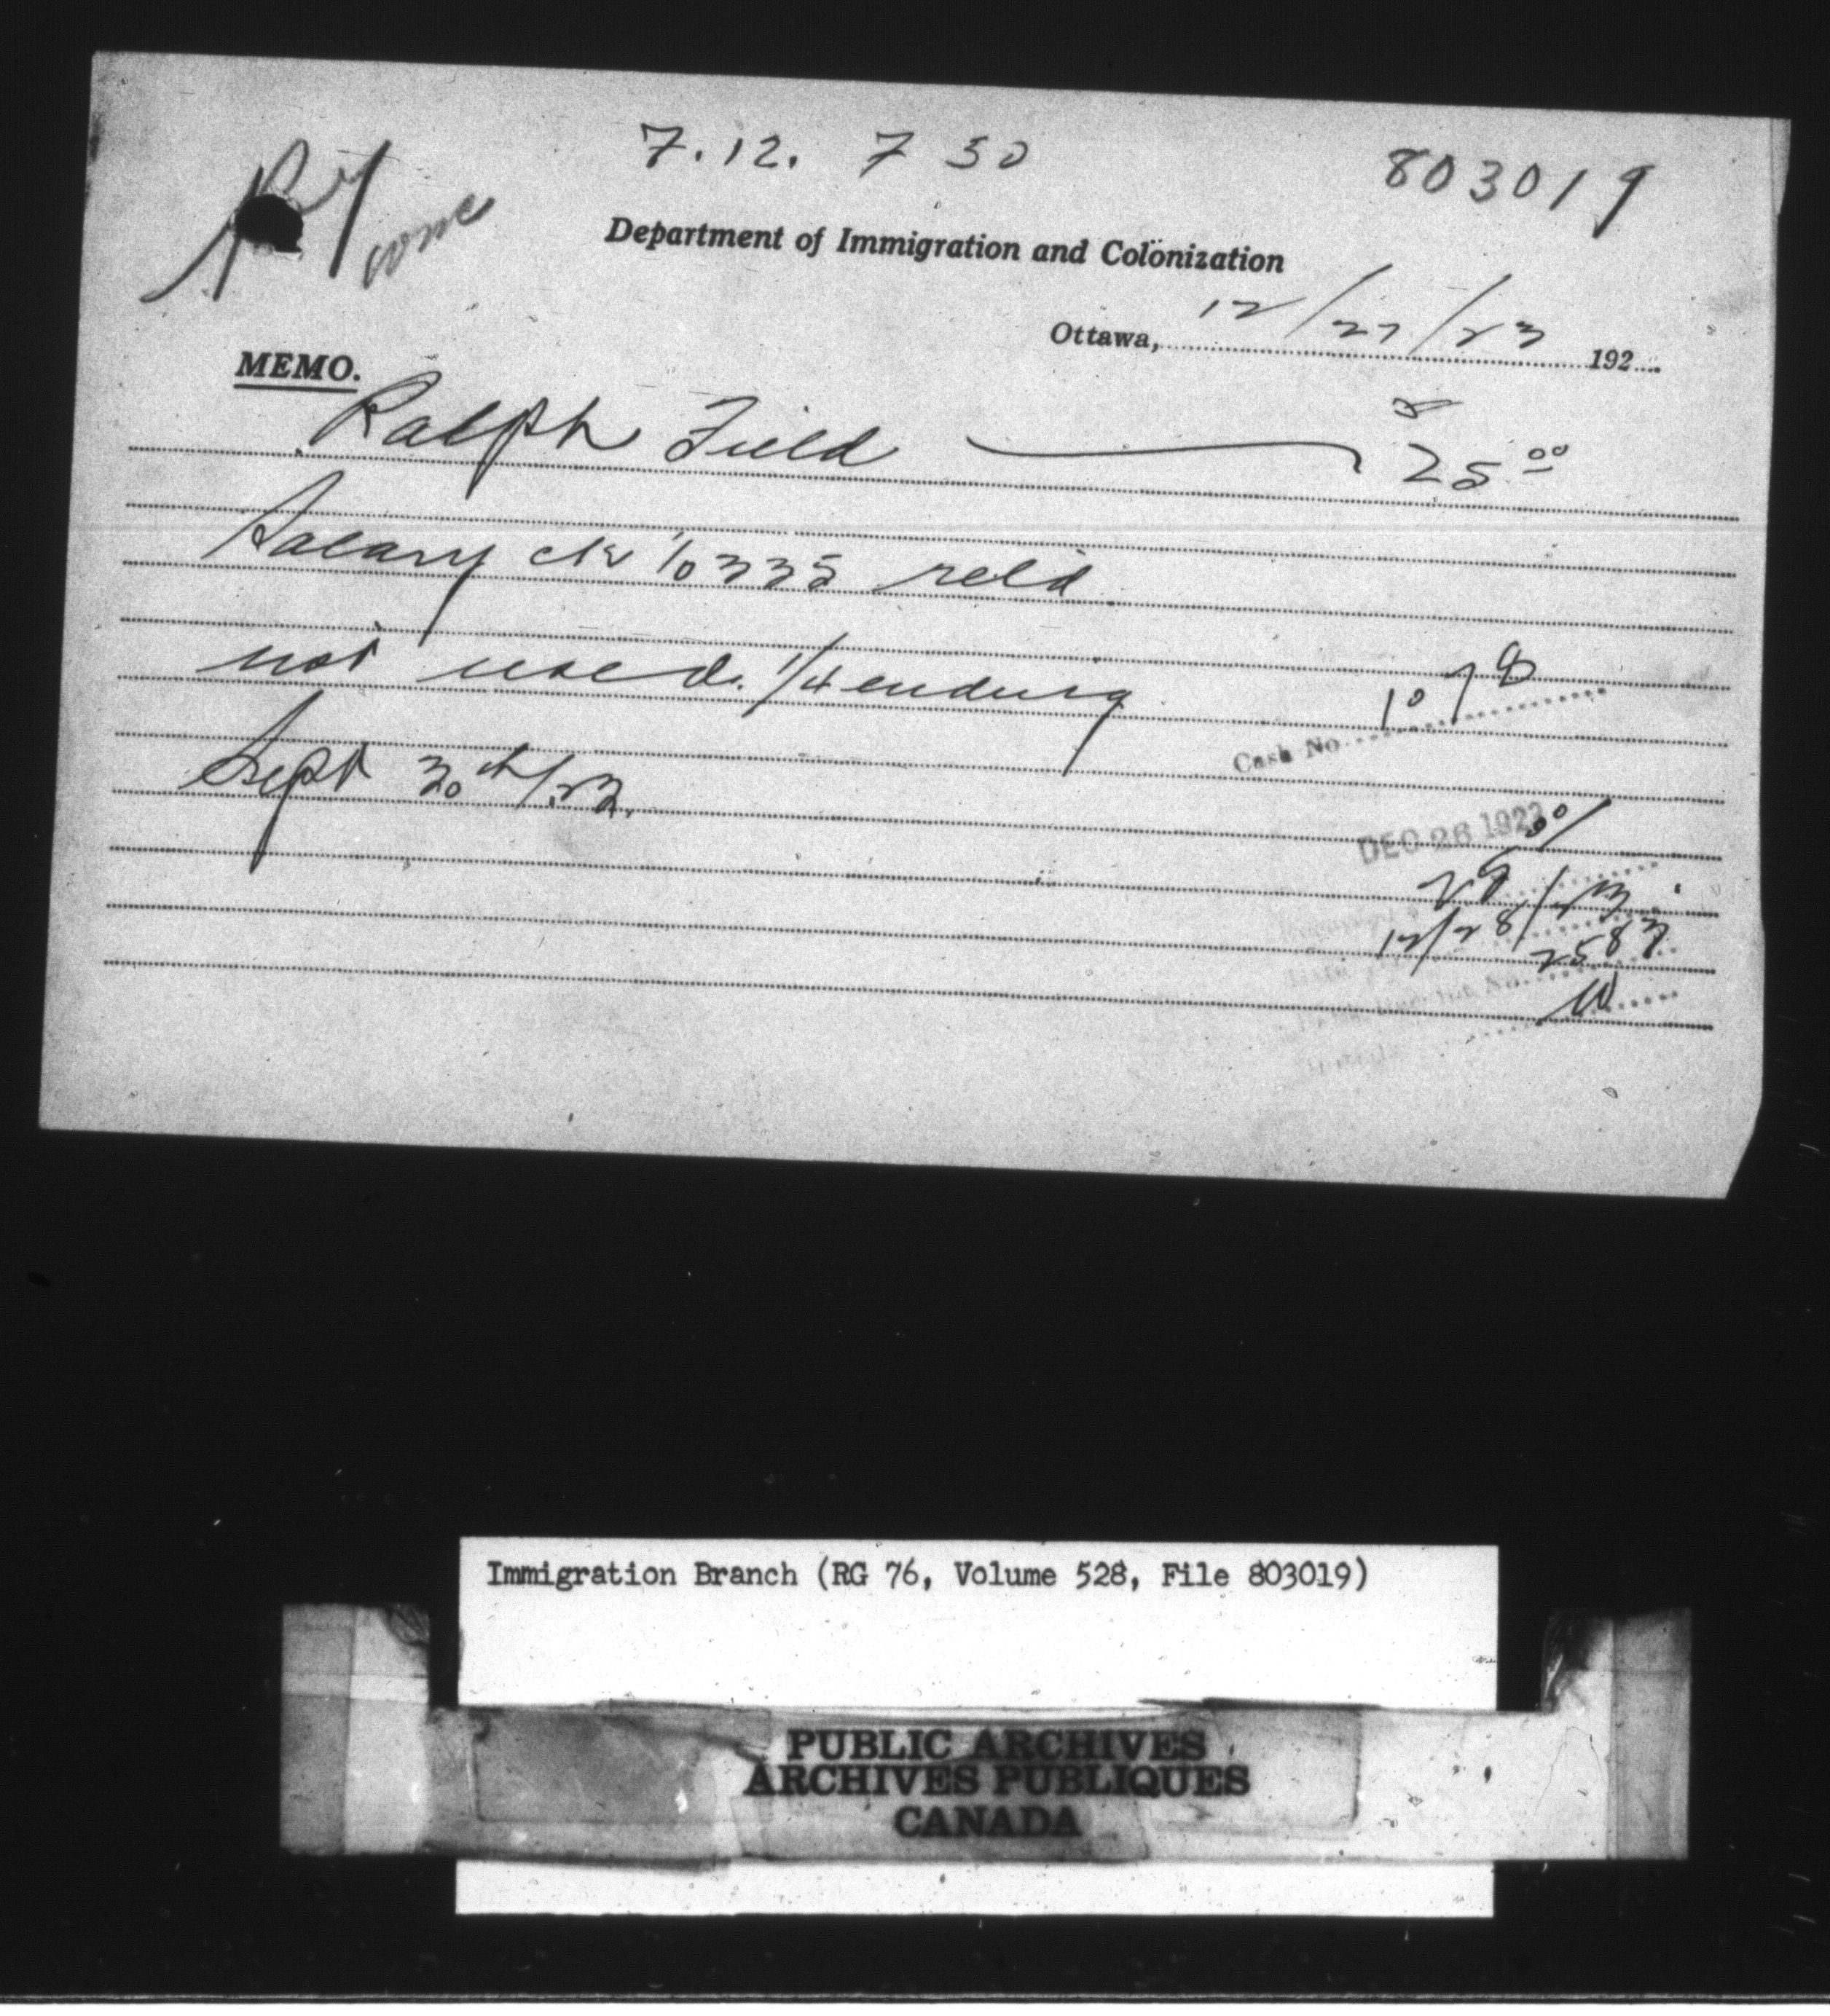 7.12. 7 30
803019
Department of Immigration and Colonization
Ottawa, 12/27/23 192
MEMO.
Ralph Field 25 00
Salary ck 10335 retd
not used. 1/4 ending
Sept 30th/23.
1078
Cash No
DEC 28 1923
12/28/23
2583
Immigration Branch (RG 76, Volume 528, File 803019)
PUBLIC ARCHIVES
ARCHIVES PUBLIQUES
CANADA